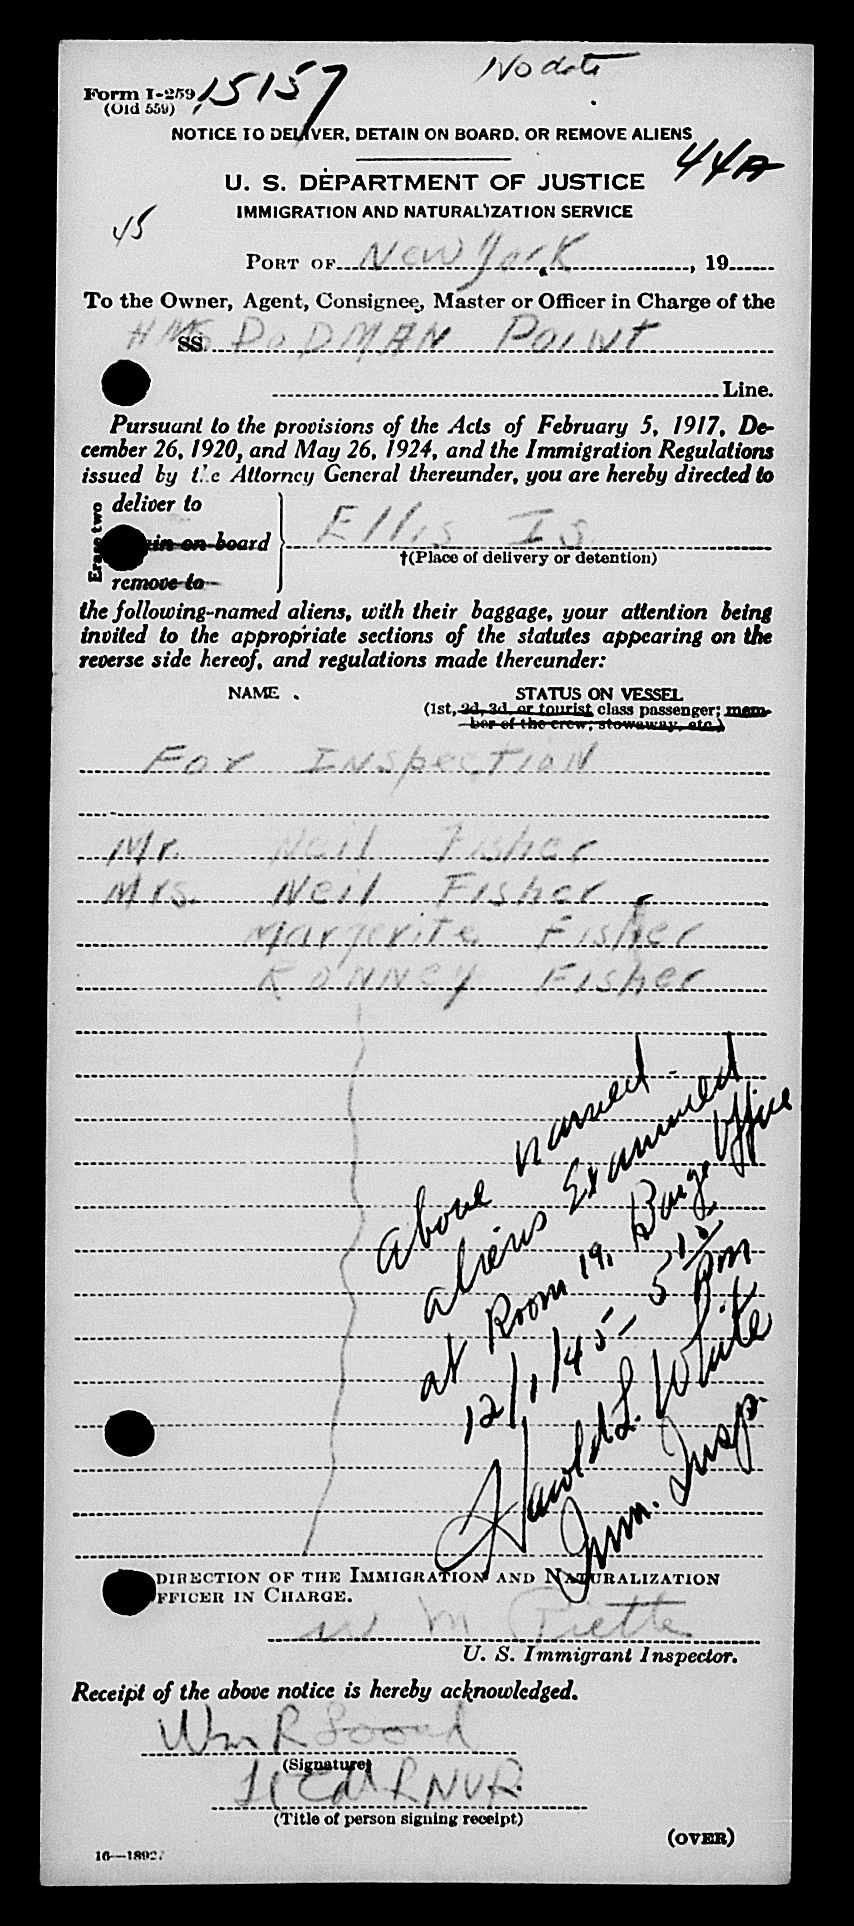 No date
Form I-259
(Old 559)
15157
NOTICE TO DELIVER, DETAIN ON BOARD, OR REMOVE ALIENS
44A
U. S. DEPARTMENT OF JUSTICE
IMMIGRATION AND NATURALIZATION SERVICE
45
PORT OF New York, 19
To the Owner, Agent, Consignee, Master or Officer in Charge of the
HMS SS. DODMAN Point
Line.
Pursuant to the provisions of the Acts of February 5, 1917, De-
cember 26, 1920, and May 26, 1924, and the Immigration Regulations
issued by the Attorney General thereunder, you are hereby directed to
Erase two
deliver to
ain on board
remove to
Ellis Is.
†(Place of delivery or detention)
the following-named aliens, with their baggage, your attention being
invited to the appropriate sections of the statutes appearing on the
reverse side hereof, and regulations made thereunder:
NAME STATUS ON VESSEL
(1st, 2d, 3d, or tourist class passenger; mem-
ber of the crew; stowaway, etc.)
For Inspection
Mr. Neil Fisher
Mrs. Neil Fisher
Margerite Fisher
RONNEY Fisher
above named
aliens Examined
at Room 19, Barge Office
12/1/45 - 5 Pm
Harold L. White
Imm. Insp.
DIRECTION OF THE IMMIGRATION AND NATURALIZATION
FFICER IN CHARGE.
W M
U. S. Immigrant Inspector.
Receipt of the above notice is hereby acknowledged.
Wm R
(Signature)
RNVR.
(Title of person signing receipt)
(OVER)
16—1892